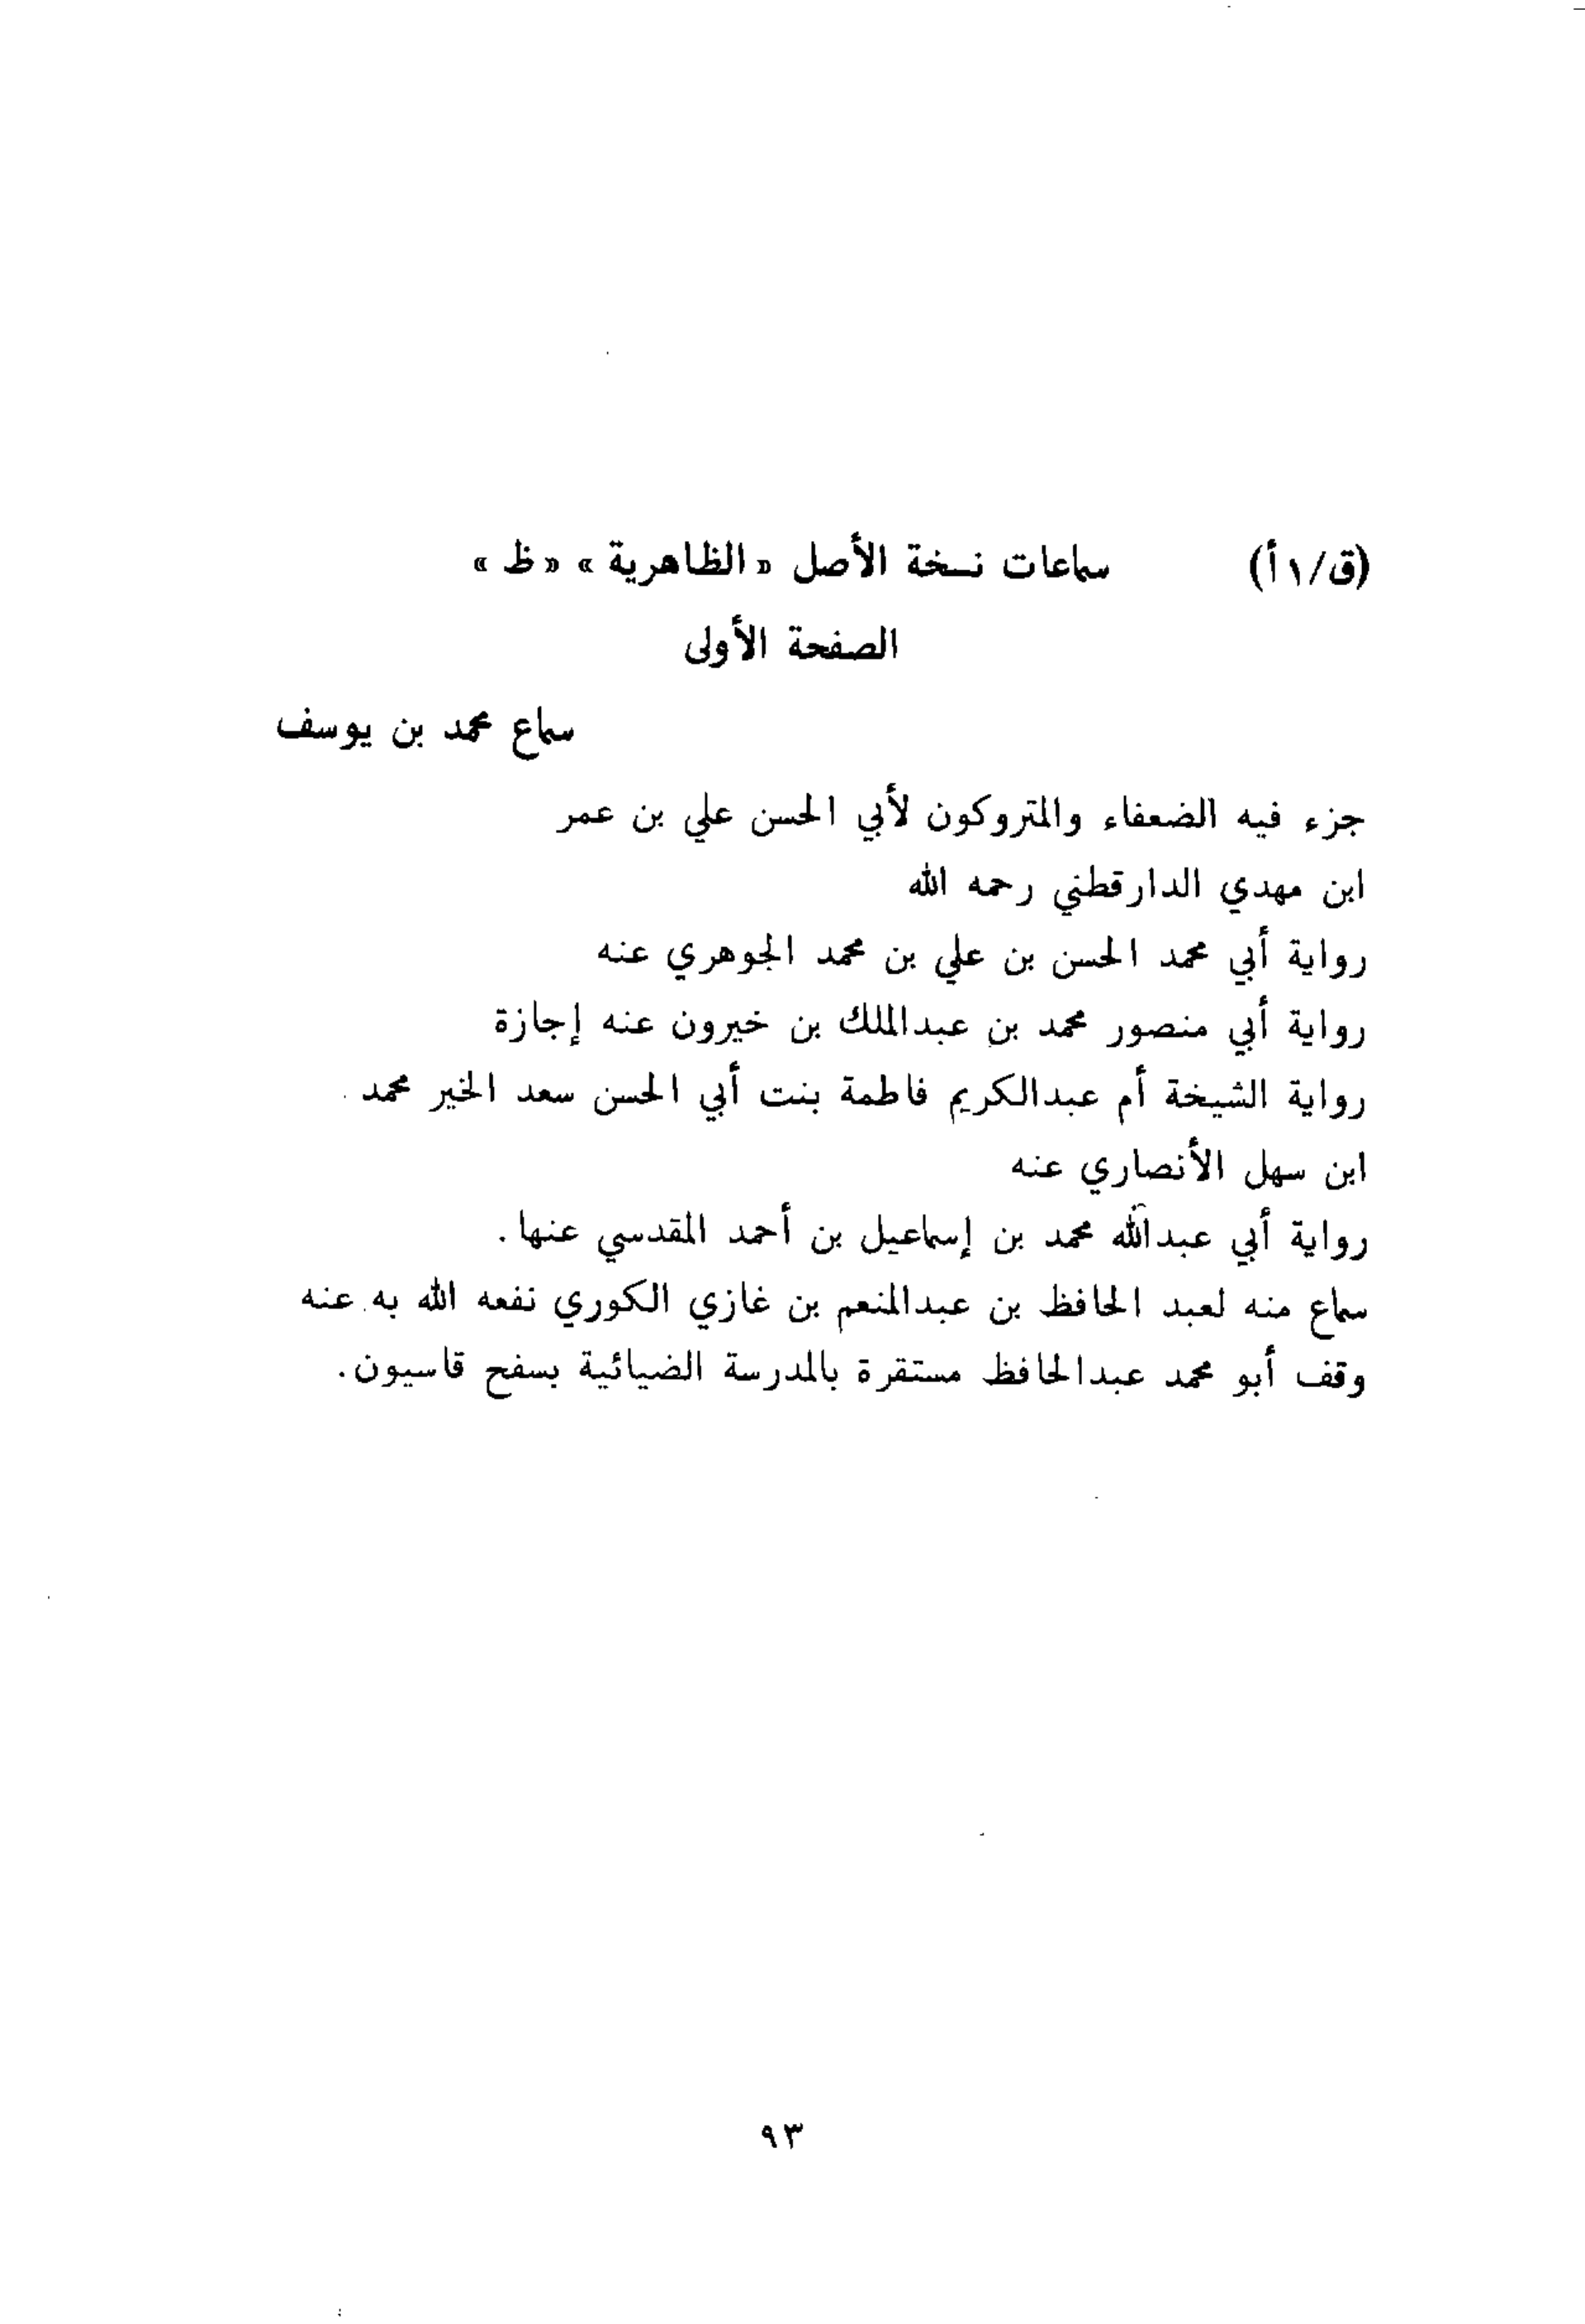 (ق/١ أ) سماعات نسخة الأصل «الظاهرية» «ظ»
الصفحة الأولى
سماع محمد بن يوسف
جزء فيه الضعفاء والمتروكون لأبي الحسن علي بن عمر
ابن مهدي الدارقطني رحمه الله
رواية أبي محمد الحسن بن علي بن محمد الجوهري عنه
رواية أبي منصور محمد بن عبدالملك بن خيرون عنه إجازة
رواية الشيخة أم عبدالكريم فاطمة بنت أبي الحسن سعد الخير محمد
ابن سهل الأنصاري عنه
رواية أبي عبدالله محمد بن إسماعيل بن أحمد المقدسي عنها.
سماع منه لعبد الحافظ بن عبدالمنعم بن غازي الكوري نفعه الله به عنه
وقف أبو محمد عبدالحافظ مستقرة بالمدرسة الضيائية بسفح قاسيون.
٩٣